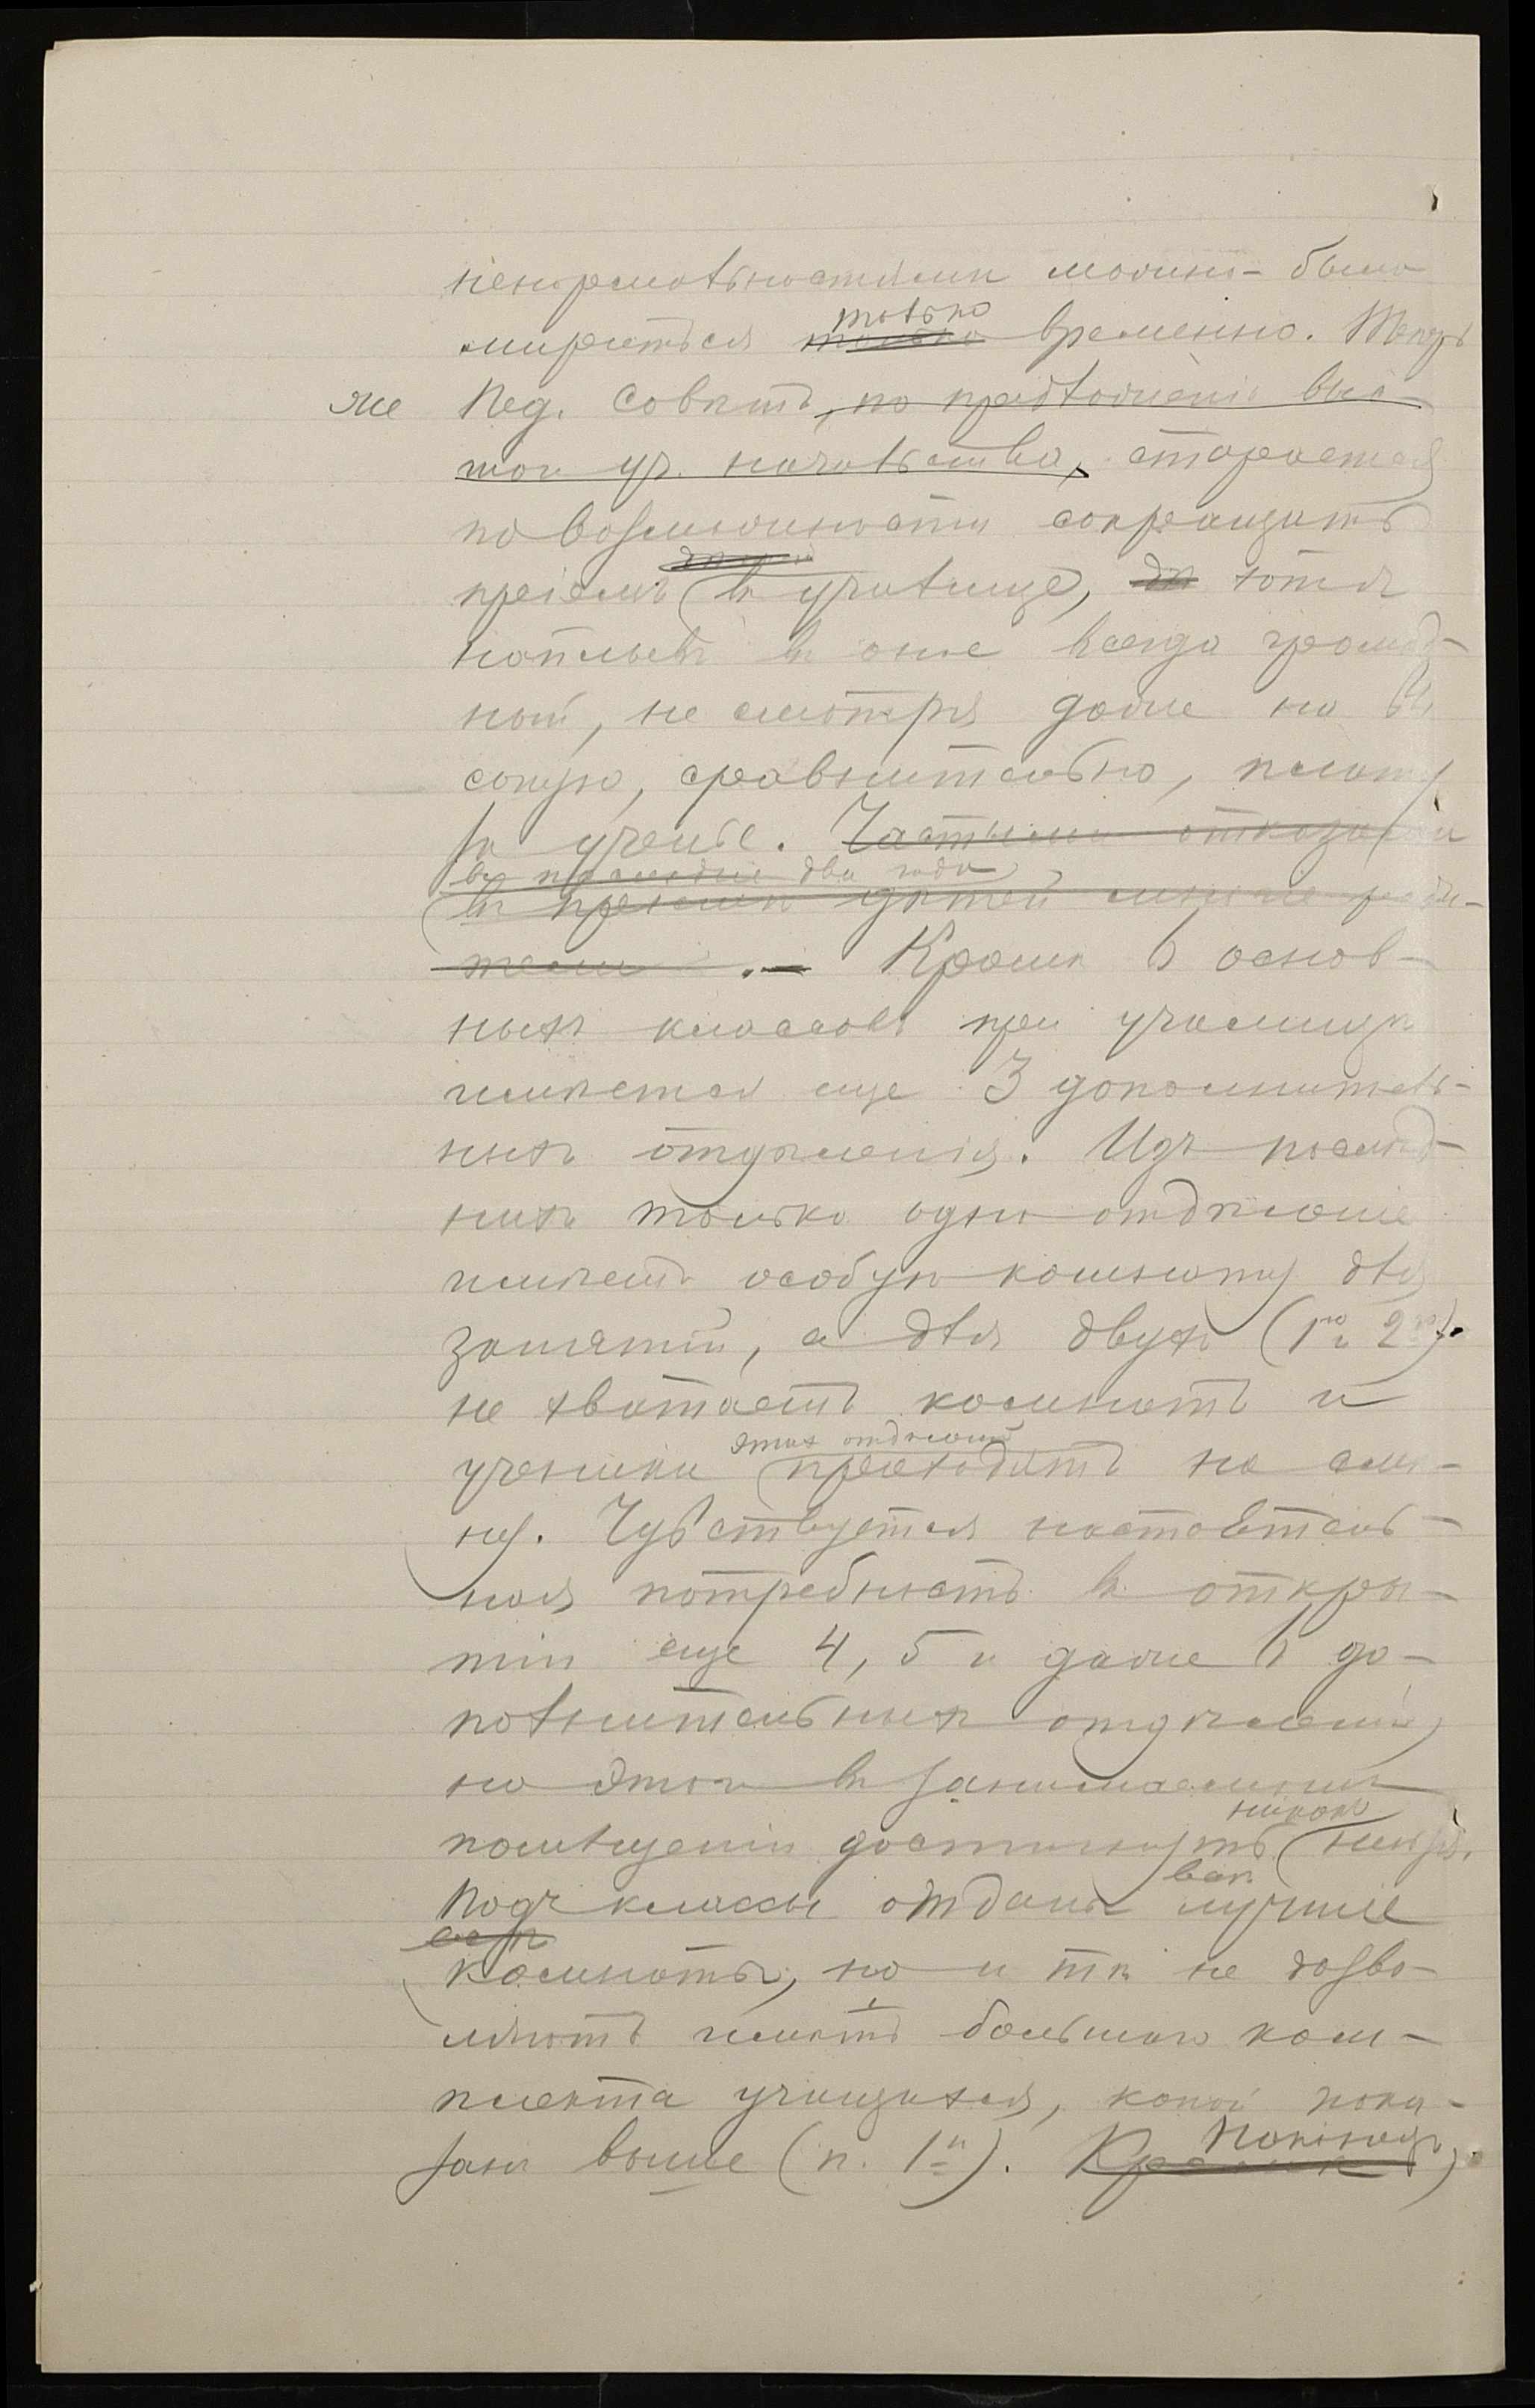 ненормальностями можно было
только
мириться только временно. Теперь
же Пед. Совѣтъ, по предложенію выс-
шаго уч. начальства, старается
по возможности сокращать
пріемъ въ училище, хотя
наплывъ въ оное всегда громад-
ный, не смотря даже на вы
сокую, сравнительно, плату
за ученье. Частыми отказами
въ послѣдніе два года
въ пріемѣ дѣтей многіе роди-
тели .— Кромѣ 6 основ-
ныхъ классовъ при училищѣ
имѣется еще 3 дополнитель-
ныхъ отдѣленія. Изъ послѣд-
нихъ только одно отдѣленіе
имѣетъ особую комнату для
занятій, а для двухъ (1го и 2го)
не хватаетъ комнатъ и
этихъ отдѣленій
ученики приходятъ на смѣ-
ну. Чувствуется настоятель-
ная потребность въ откры-
тіи еще 4, 5 и даже 6 до-
полнительныхъ отдѣленій,
но этого въ занимаемомъ
никакъ
помѣщеніи достигнуть нельзя.
всѣ
Подъ классы отданы лучшіе
комнаты, но и тѣ не дозво-
ляютъ имѣть большаго ком-
плекта учащихся, какой пока-
занъ выше (п. 1й). Кромѣ